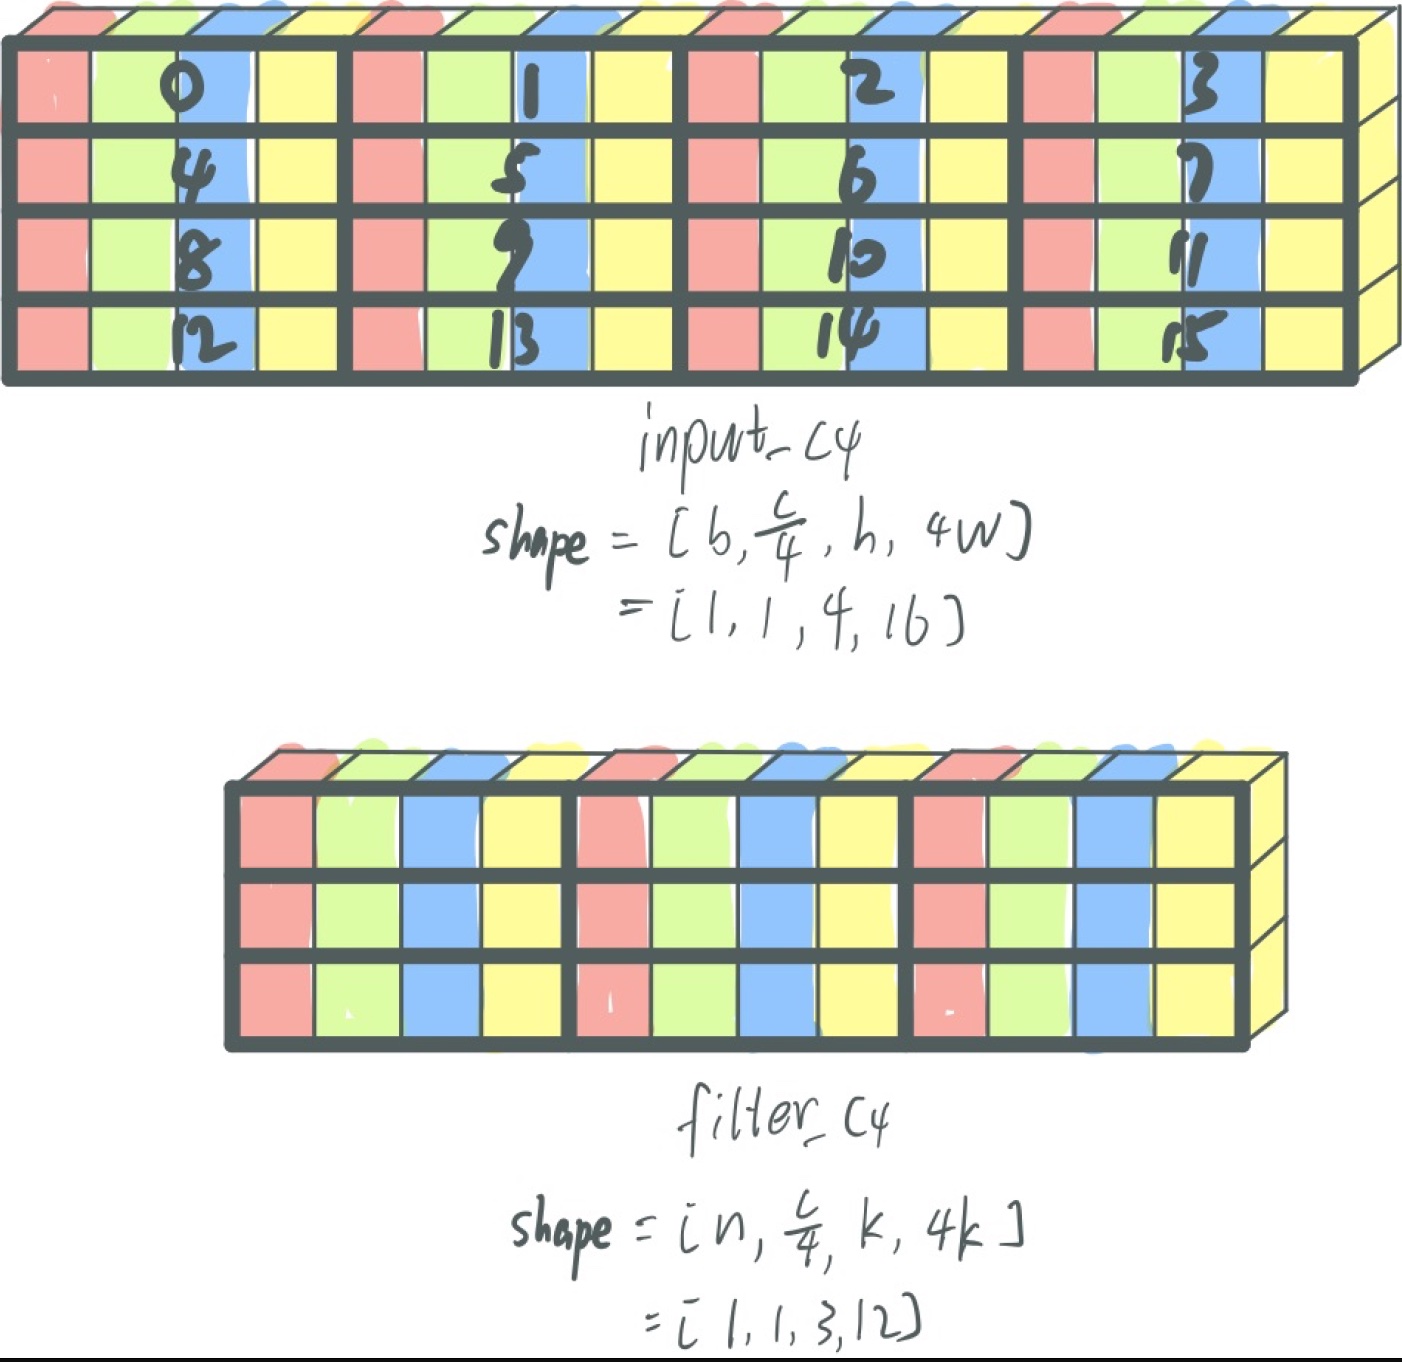 0 1 2 3
4 5 6 7
8 9 10 11
12 13 14 15
input_c4
shape = [b, c/4, h, 4w]
= [1, 1, 4, 16]
filter_c4
shape = [n, c/4, k, 4k]
= [1, 1, 3, 12]